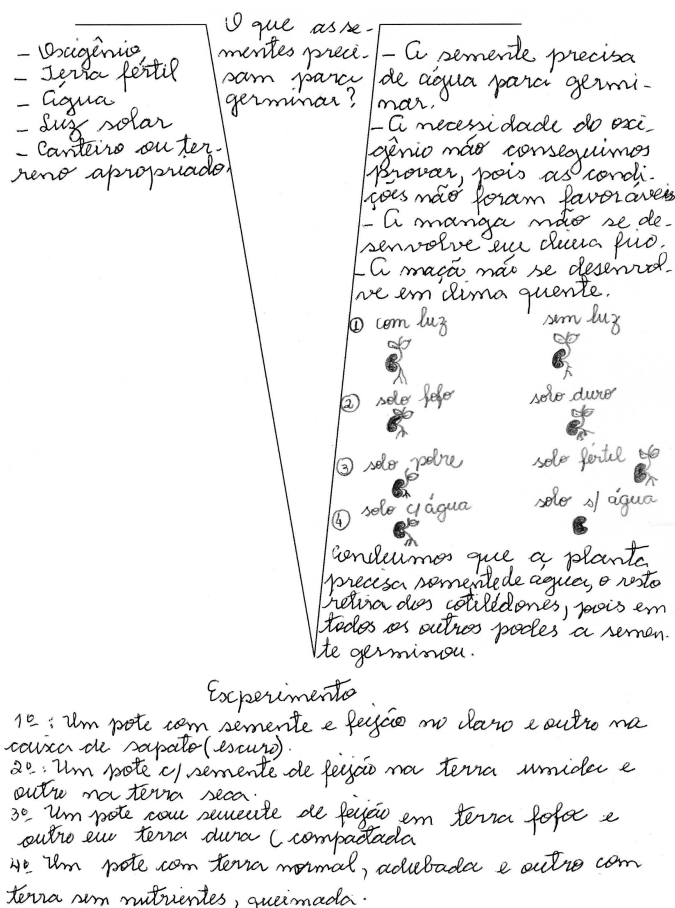 O que as se-
mentes preci-
sam para
germinar?
- Oxigênio
- Terra fértil
- Água
- Luz solar
- Canteiro ou ter-
reno apropriado
- A semente precisa
de água para germi-
nar.
- A necessidade do oxi-
gênio não conseguimos
provar, pois as condi-
ções não foram favoráveis
- A manga não se de-
senvolve em clima frio.
- A maçã não se desenvol-
ve em clima quente.
① com luz sem luz
② solo fofo solo duro
③ solo pobre solo fértil
④ solo c/ água solo s/ água
Concluimos que a planta
precisa somente de água, o resto
retira dos cotilédones, pois em
todos os outros potes a semen-
te germinou.
Experimento
1º: Um pote com semente e feijão no claro e outro na
caixa de sapato (escuro).
2º: Um pote c/ semente de feijão na terra umida e
outro na terra seca.
3º Um pote com semente de feijão em terra fofa e
outro em terra dura (compactada
4º Um pote com terra normal, adubada e outro com
terra sem nutrientes, queimada.